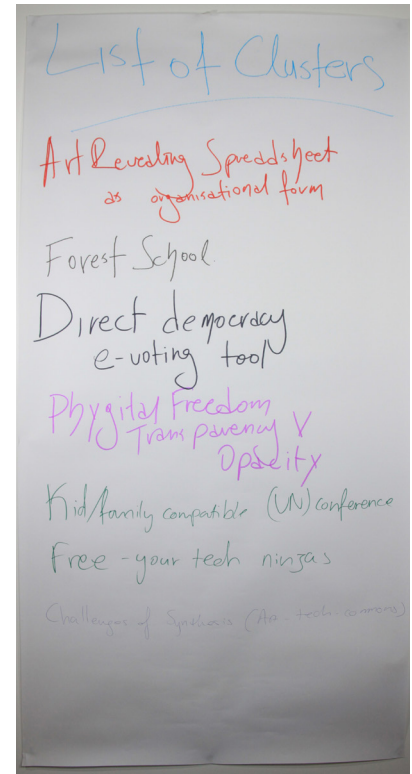 List of Clusters
Art Revealing Spreadsheet
as organisational form
Forest School
Direct democracy
e-voting tool
Phygital Freedom
Transparency V
Opacity
Kid/family compatible (UN)conference
Free-your tech ninjas
Challenges of Synthesis (Art-tech-commons)